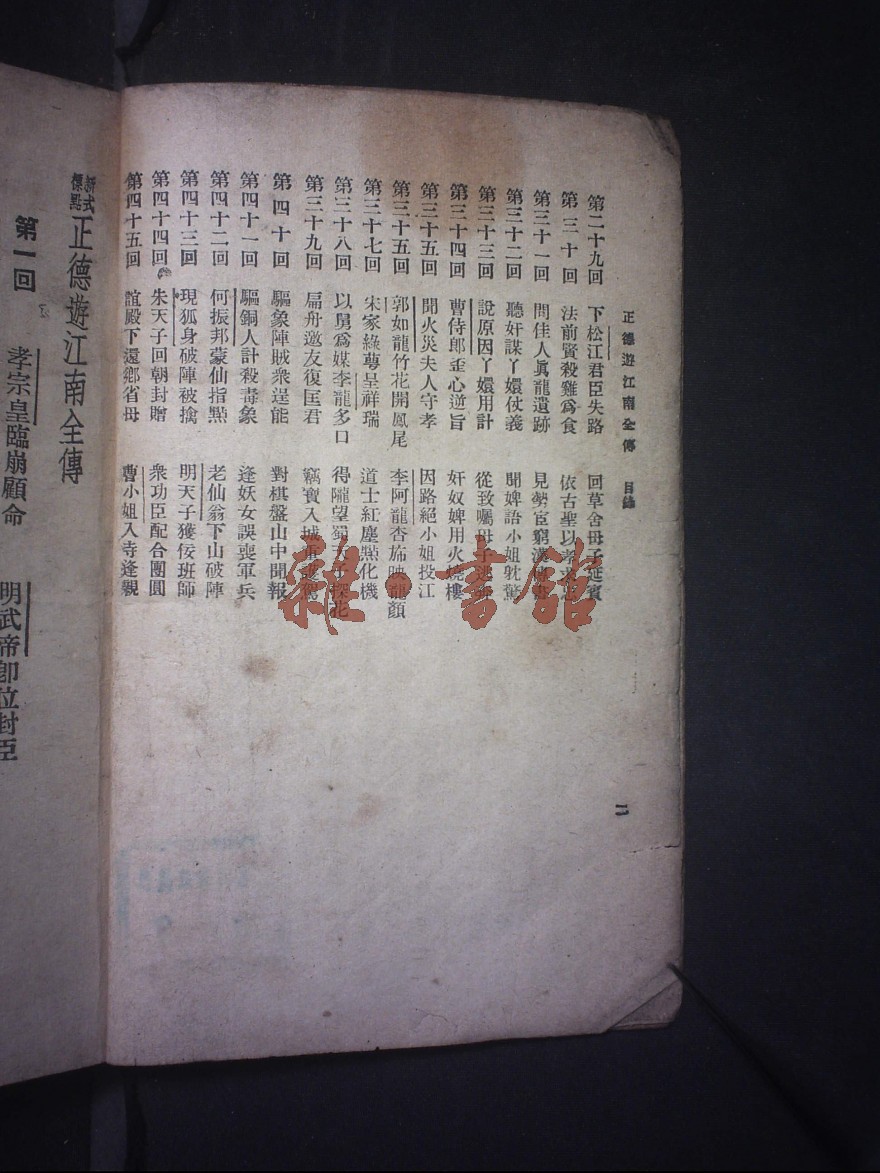 正德遊江南全傳 目錄 二
第二十九回 下松江君臣失路 回草舍母子延賓
第三十回 法前賢殺雞爲食 依古聖以孝
第三十一回 問佳人眞龍遺跡 見勢宦窮漢
第三十二回 聽奸謀丫嬛仗義 聞婢語小姐躭驚
第三十三回 說原因丫嬛用計 從致囑母子逃
第三十四回 曹侍郎歪心逆旨 奸奴婢用火燒樓
第三十五回 聞火災夫人守孝 因路絕小姐投江
第三十五回 郭如龍竹花開鳳尾 李阿龍杏旆映龍顏
第三十七回 宋家綠萼呈祥瑞 道士紅塵㸃化機
第三十八回 以舅爲媒李龍多口 得隴望蜀天子探花
第三十九回 扁舟邀友復匡君 竊寶入城重護駕
第四十回 驅象陣賊衆逞能 對棋盤山中聞報
第四十一回 驅銅人計殺毒象 逢妖女誤喪軍兵
第四十二回 何振邦蒙仙指㸃 老仙翁下山破陣
第四十三回 現狐身破陣被擒 明天子獲佞班師
第四十四回 朱天子回朝封贈 衆功臣配合團圓
第四十五回 誼殿下還鄉省母 曹小姐入寺逢親
新式標點 正德遊江南全傳
第一回 孝宗皇臨崩顧命 明武帝卽位封臣
雜·書館